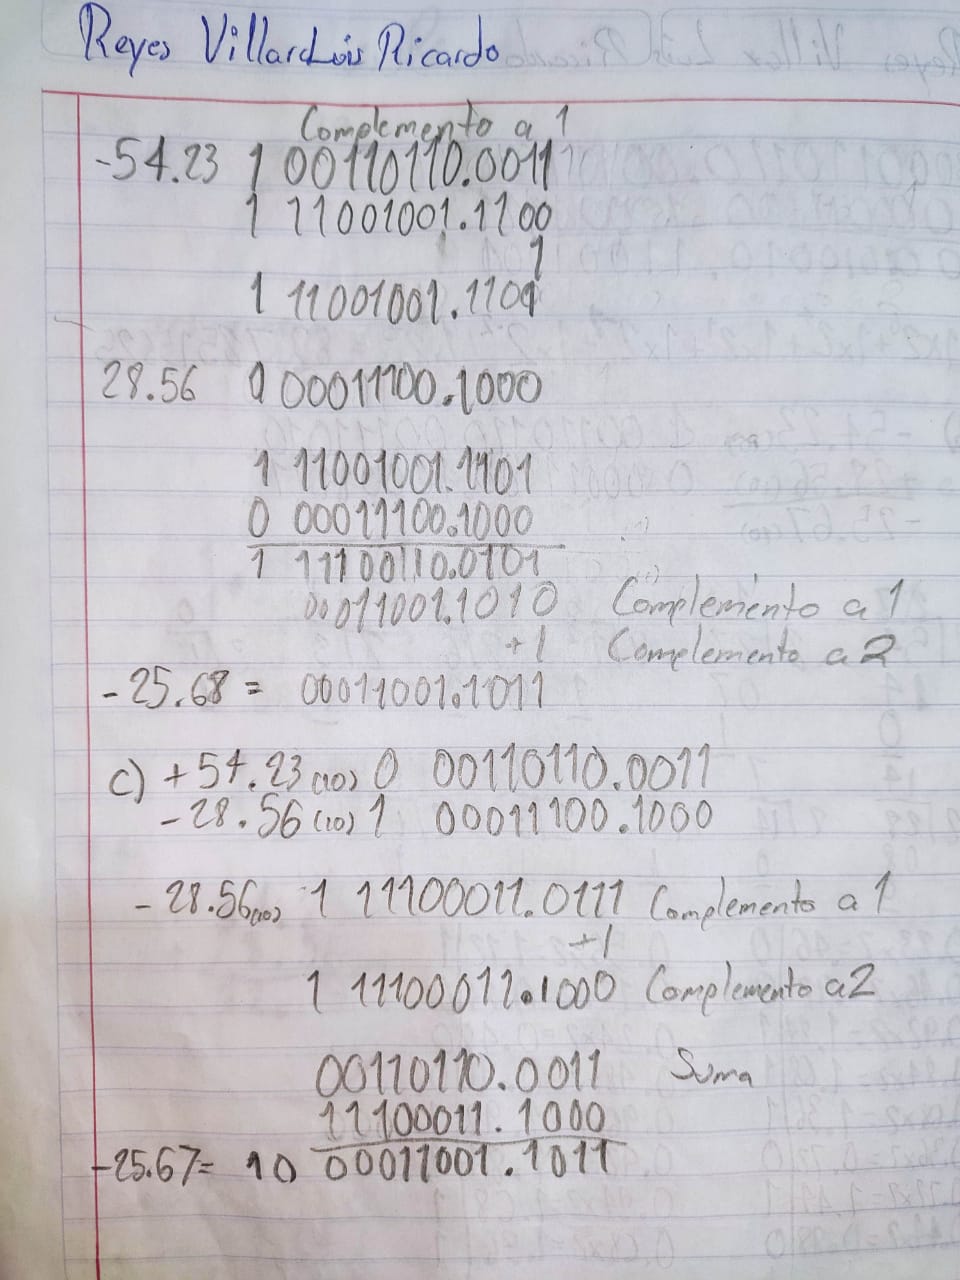 Reyes Villar Luis Ricardo
Complemento a 1
-54.23 1 00110110.0011
1 11001001.1100
1
1 11001001.1101
28.56 0 00011100.1000
1 11001001.1101
0 00011100.1000
1 11100110.0101
00011001.1010 Complemento a 1
+1 Complemento a 2
-25.68 = 00011001.1011
c) +54.23(10) 0 00110110.0011
-28.56(10) 1 00011100.1000
-28.56(10) 1 11100011.0111 Complemento a 1
+1
1 11100011.1000 Complemento a 2
00110110.0011 Suma
11100011.1000
-25.67= 10 00011001.1011